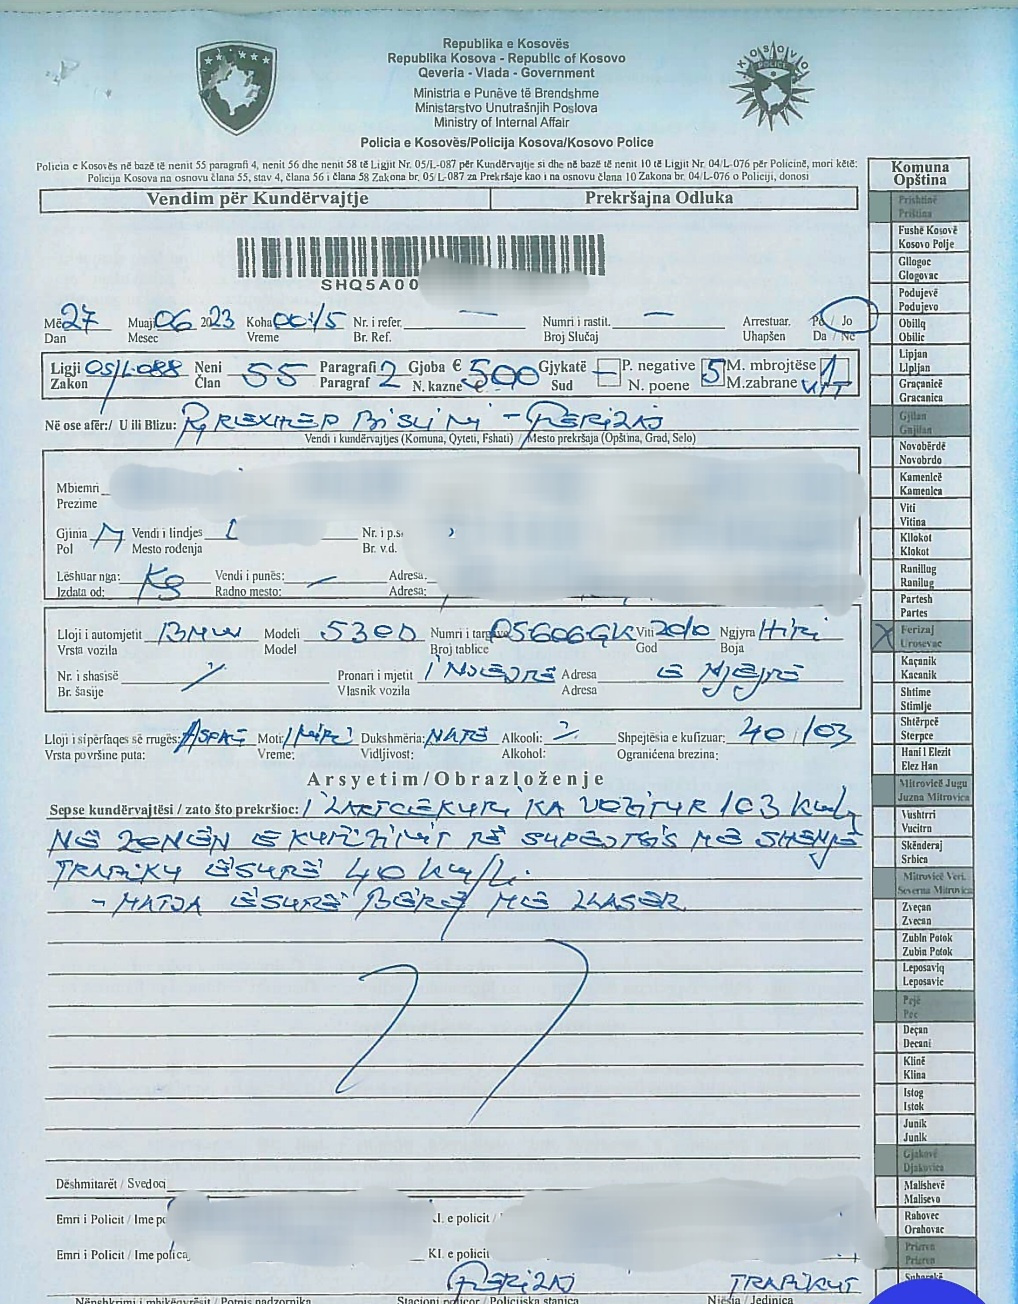 Republika e Kosovës
Republika Kosova - Republic of Kosovo
Qeveria - Vlada - Government
Ministria e Punëve të Brendshme
Ministarstvo Unutrašnjih Poslova
Ministry of Internal Affair
Policia e Kosovës/Policija Kosova/Kosovo Police
KOSOVO
POLICE
Policia e Kosovës në bazë të nenit 55 paragrafi 4, nenit 56 dhe nenit 58 të Ligjit Nr. 05/L-087 për Kundërvajtje si dhe në bazë të nenit 10 të Ligjit Nr. 04/L-076 për Policinë, mori këtë:
Policija Kosova na osnovu člana 55, stav 4, člana 56 i člana 58 Zakona br. 05/L-087 za Prekršaje kao i na osnovu člana 10 Zakona br. 04/L-076 o Policiji, donosi
Vendim për Kundërvajtje Prekršajna Odluka
SHQ5A00
Më 27 Muaji 06 2023 Koha 00:15 Nr. i refer. — Numri i rastit. — Arrestuar. Po / Jo
Dan Mesec Vreme Br. Ref. Broj Slučaj Uhapšen Da / Ne
Ligji 05/L-088 Neni 55 Paragrafi 2 Gjoba € 500 Gjykatë – P. negative 5 M. mbrojtëse 1
Zakon Član Paragraf N. kazne € Sud N. poene M.zabrane VTT
Në ose afër:/ U ili Blizu: Rr REXHEP BISLIMI - FERIZAJ
Vendi i kundërvajtjes (Komuna, Qyteti, Fshati) / Mesto prekršaja (Opština, Grad, Selo)
Mbiemri
Prezime
Gjinia M Vendi i lindjes Nr. i p.s.
Pol Mesto rođenja Br. v.d.
Lëshuar nga: KS Vendi i punës: – Adresa:
Izdata od: Radno mesto: Adresa:
Lloji i automjetit BMW Modeli 530D Numri i targave 05606GK Viti 2010 Ngjyra HIRI
Vrsta vozila Model Broj tablice God Boja
Nr. i shasisë Pronari i mjetit I NJEJTË Adresa E NJEJTË
Br. šasije Vlasnik vozila Adresa
Lloji i sipërfaqes së rrugës: ASFALT Moti I MIRË Dukshmëria: NATË Alkooli: % Shpejtësia e kufizuar: 40 /103
Vrsta površine puta: Vreme: Vidljivost: Alkohol: Ograničena brezina:
Arsyetim/Obrazloženje
Sepse kundërvajtësi / zato što prekršioc: I LARTCEKURI KA VOZITUR 103 km/h
NË ZONËN E KUFIZIMIT TË SHPEJTSIS ME SHENJË
TRAFIKU ËSHTË 40 km/h.
- MATJA ËSHTË BËRË ME LASER
Dëshmitarët / Svedoci
Emri i Policit / Ime po Kl. e policit /
Emri i Policit / Ime polica Kl. e policit
FERIZAJ TRAFIKUT
Nënshkrimi i mbikëqyrësit / Potpis nadzornika Stacioni policor / Policijska stanica Njësia / Jedinica
Komuna
Opština
Prishtinë
Priština
Fushë Kosovë
Kosovo Polje
Gllogoc
Glogovac
Podujevë
Podujevo
Obiliq
Obilic
Lipjan
Lipljan
Graçanicë
Gracanica
Gjilan
Gnjilan
Novobërdë
Novobrdo
Kamenicë
Kamenica
Viti
Vitina
Kllokot
Klokot
Ranillug
Ranilug
Partesh
Partes
X Ferizaj
Urosevac
Kaçanik
Kacanik
Shtime
Stimlje
Shtërpcë
Sterpce
Hani i Elezit
Elez Han
Mitrovicë Jugu
Juzna Mitrovica
Vushtrri
Vucitrn
Skënderaj
Srbica
Mitrovicë Veri.
Severna Mitrovica
Zveçan
Zvecan
Zubin Potok
Zubin Potok
Leposaviq
Leposavic
Pejë
Pec
Deçan
Decani
Klinë
Klina
Istog
Istok
Junik
Junik
Gjakovë
Djakovica
Malishevë
Malisevo
Rahovec
Orahovac
Prizren
Prizren
Suharekë